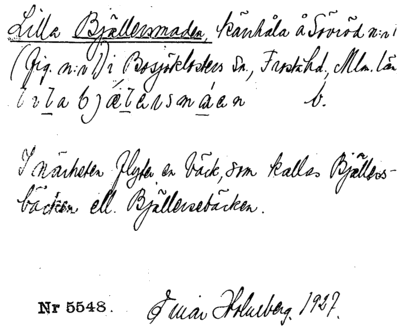 Lilla Bjällersmaden, kärrhåla å Söviöd n:r 1
(Jig. n:r 1) i Bosjöklosters sn, Frosta hd, Mlm. län
lila bjælersmáen b.
I närheten flyter en bäck, som kallas Bjällers-
bäcken ell. Bjällersebäcken.
Nr 5548. Einar Holmberg. 1927.